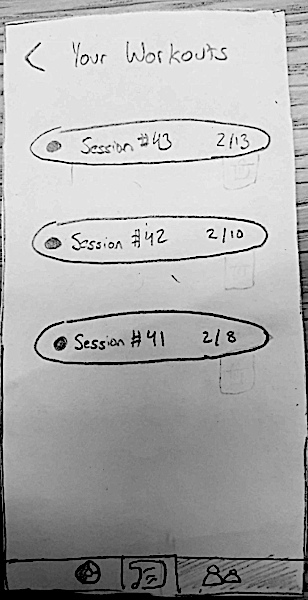 < Your Workouts
Session #43 2/13
Session #42 2/10
Session #41 2/8